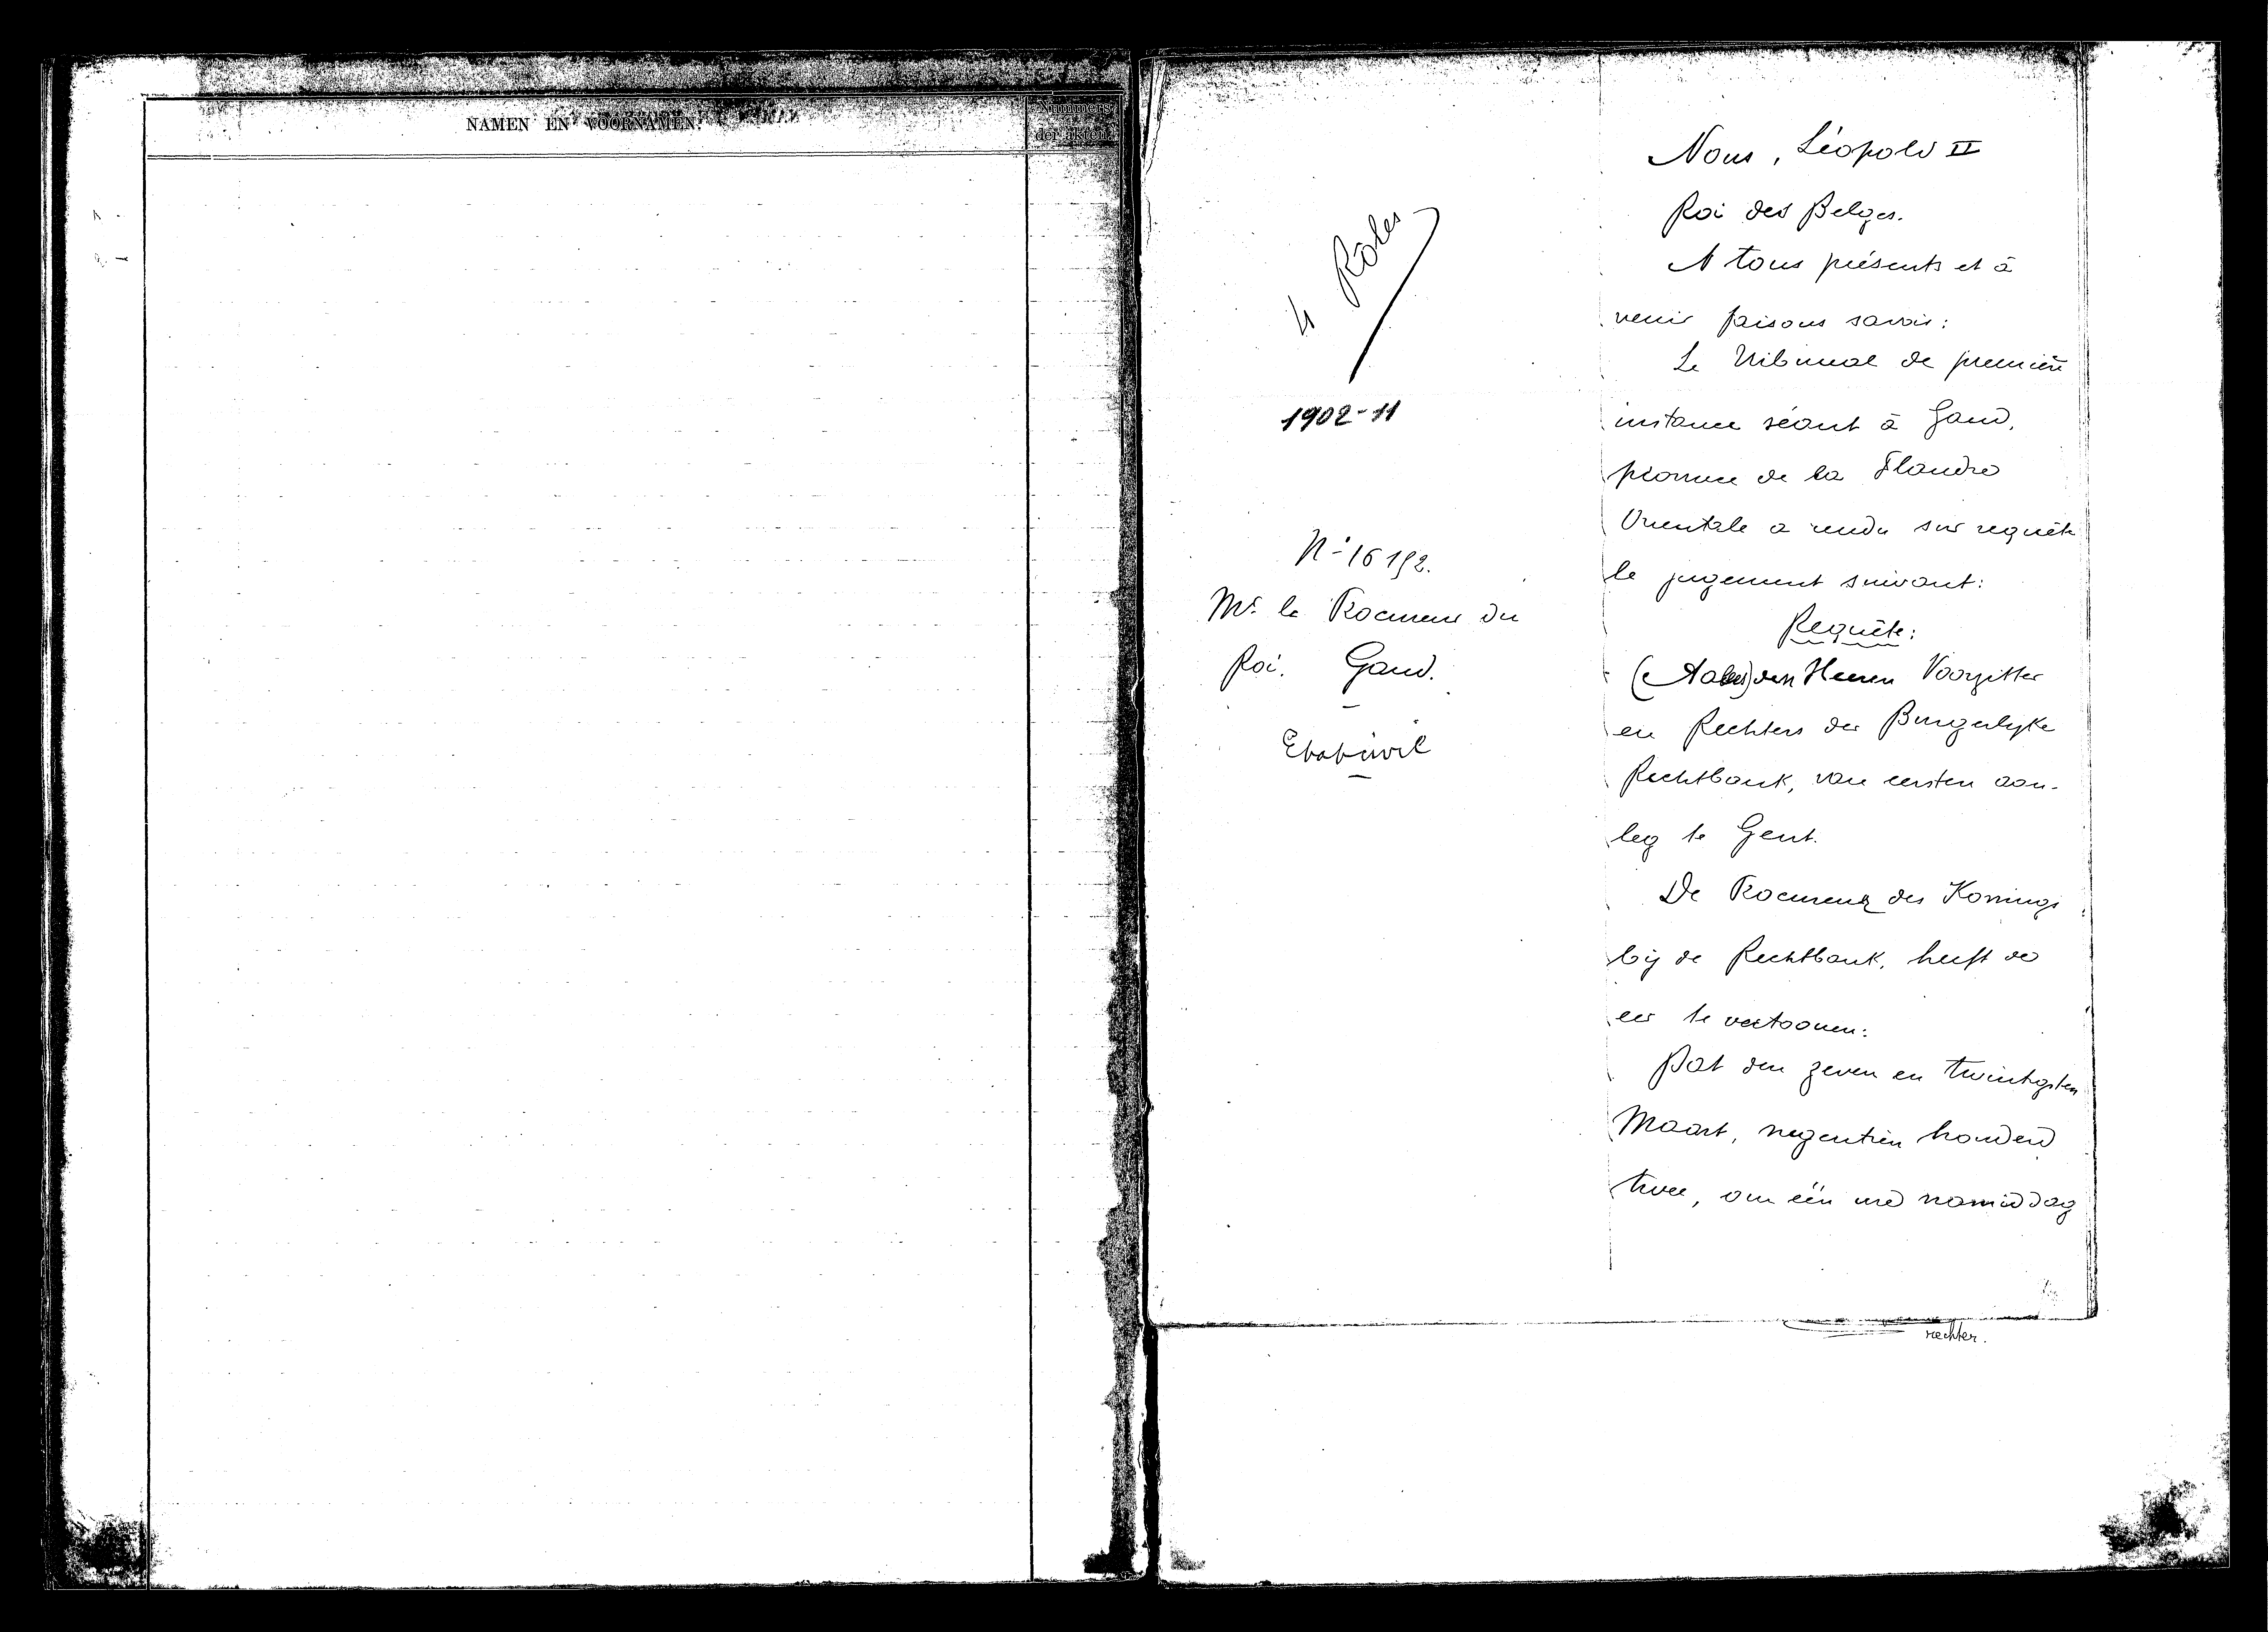 NAMEN EN VOORNAMEN.
Nummers
der akten.
4 Rôles
1902-11
Mr. le Procureur du
Roi. Gand.
Etat-civil
Nous, Léopold II
Roi des Belges.
A tous présents et à
venir faisons savoir:
Le Tribunal de première
instance séant à Gand,
province de la Flandre
Orientale a rendu sur requête
le jugement suivant:
Requête:
den Heeren Voorzitter
en Rechters der Burgerlyke
Rechtbank, van eersten aan-
leg te Gent.
De Procureur des Konings
bij de Rechtbank, heeft de
eer te vertoonen:
Dat den zeven en twintigsten
Maart, negentien honderd
twee, om één ure namiddag
rechter.